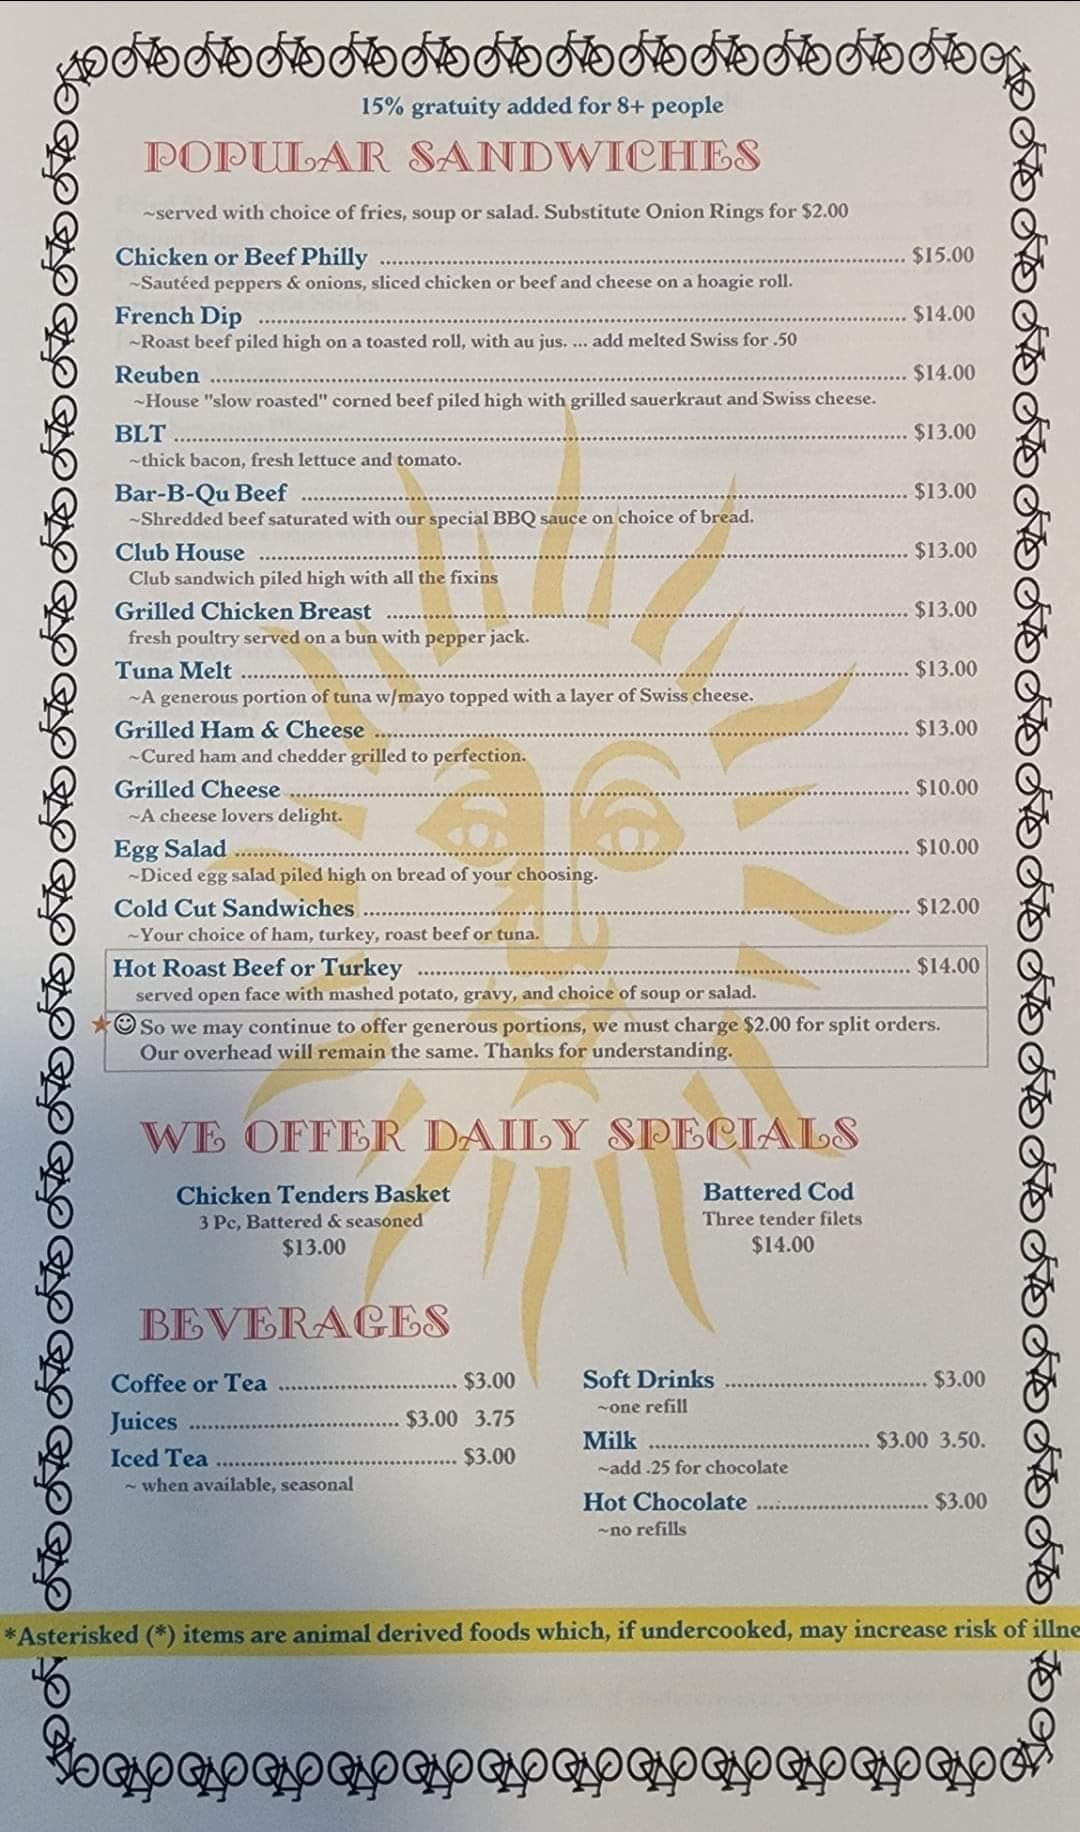 15% gratuity added for 8+ people
POPULAR SANDWICHES
~served with choice of fries, soup or salad. Substitute Onion Rings for $2.00
Chicken or Beef Philly ........ $15.00
~Sautéed peppers & onions, sliced chicken or beef and cheese on a hoagie roll.
French Dip ........ $14.00
~Roast beef piled high on a toasted roll, with au jus. ... add melted Swiss for .50
Reuben ........ $14.00
~House "slow roasted" corned beef piled high with grilled sauerkraut and Swiss cheese.
BLT ........ $13.00
~thick bacon, fresh lettuce and tomato.
Bar-B-Qu Beef ........ $13.00
~Shredded beef saturated with our special BBQ sauce on choice of bread.
Club House ........ $13.00
Club sandwich piled high with all the fixins
Grilled Chicken Breast ........ $13.00
fresh poultry served on a bun with pepper jack.
Tuna Melt ........ $13.00
~A generous portion of tuna w/mayo topped with a layer of Swiss cheese.
Grilled Ham & Cheese ........ $13.00
~Cured ham and chedder grilled to perfection.
Grilled Cheese ........ $10.00
~A cheese lovers delight.
Egg Salad ........ $10.00
~Diced egg salad piled high on bread of your choosing.
Cold Cut Sandwiches ........ $12.00
~Your choice of ham, turkey, roast beef or tuna.
Hot Roast Beef or Turkey ........ $14.00
served open face with mashed potato, gravy, and choice of soup or salad.
★☺So we may continue to offer generous portions, we must charge $2.00 for split orders.
Our overhead will remain the same. Thanks for understanding.
WE OFFER DAILY SPECIALS
Chicken Tenders Basket
3 Pc, Battered & seasoned
$13.00
Battered Cod
Three tender filets
$14.00
BEVERAGES
Coffee or Tea ........ $3.00
Juices ........ $3.00 3.75
Iced Tea ........ $3.00
~ when available, seasonal
Soft Drinks ........ $3.00
~one refill
Milk ........ $3.00 3.50.
~add .25 for chocolate
Hot Chocolate ........ $3.00
~no refills
*Asterisked (*) items are animal derived foods which, if undercooked, may increase risk of illne